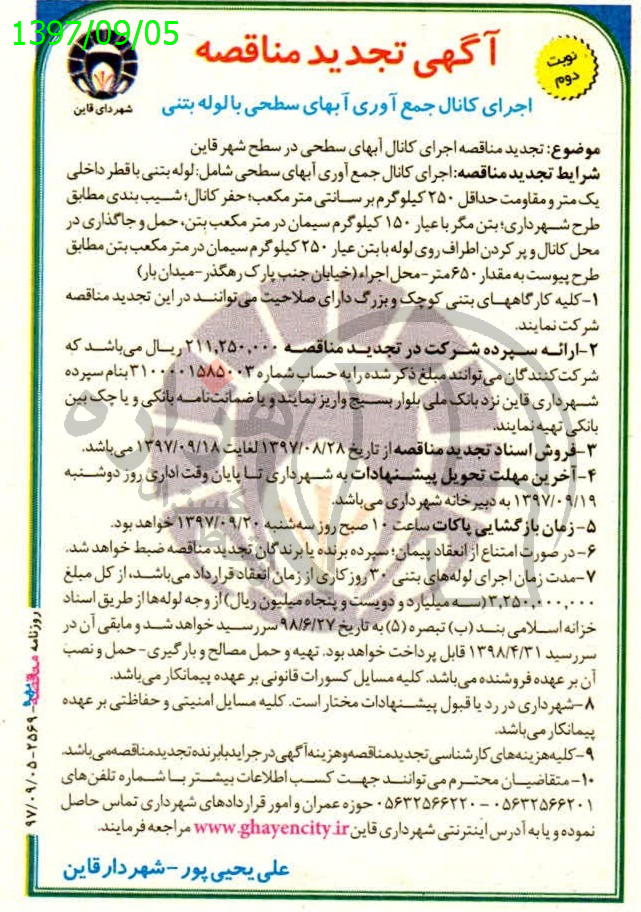 1397/09/05
آگهی تجدید مناقصه
نوبت
دوم
شهرداری قاین
اجرای کانال جمع آوری آبهای سطحی با لوله بتنی
موضوع: تجدید مناقصه اجرای کانال آبهای سطحی در سطح شهر قاین
شرایط تجدید مناقصه: اجرای کانال جمع آوری آبهای سطحی شامل: لوله بتنی با قطر داخلی
یک متر و مقاومت حداقل ۲۵۰ کیلوگرم بر سانتی متر مکعب؛ حفر کانال؛ شیب بندی مطابق
طرح شهرداری؛ بتن مگر با عیار ۱۵۰ کیلوگرم سیمان در متر مکعب بتن، حمل و جاگذاری در
محل کانال و پر کردن اطراف روی لوله با بتن عیار ۲۵۰ کیلوگرم سیمان در متر مکعب بتن مطابق
طرح پیوست به مقدار ۶۵۰ متر - محل اجراء (خیابان جنب پارک رهگذر - میدان بار)
۱- کلیه کارگاههای بتنی کوچک و بزرگ دارای صلاحیت می‌توانند در این تجدید مناقصه
شرکت نمایند.
۲- ارائه سپرده شرکت در تجدید مناقصه ۲۱۱,۲۵۰,۰۰۰ ریال می‌باشد که
شرکت‌کنندگان می‌توانند مبلغ ذکر شده را به حساب شماره ۳۱۰۰۰۰۱۵۸۵۰۰۳ بنام سپرده
شهرداری قاین نزد بانک ملی بلوار بسیج واریز نمایند و یا ضمانت‌نامه بانکی و یا چک بین
بانکی تهیه نمایند.
۳- فروش اسناد تجدید مناقصه از تاریخ ۱۳۹۷/۰۸/۲۸ لغایت ۱۳۹۷/۰۹/۱۸ می‌باشد.
۴- آخرین مهلت تحویل پیشنهادات به شهرداری تا پایان وقت اداری روز دوشنبه
۱۳۹۷/۰۹/۱۹ به دبیرخانه شهرداری می‌باشد.
۵- زمان بازگشایی پاکات ساعت ۱۰ صبح روز سه‌شنبه ۱۳۹۷/۰۹/۲۰ خواهد بود.
۶- در صورت امتناع از انعقاد پیمان؛ سپرده برنده یا برندگان تجدید مناقصه ضبط خواهد شد.
۷- مدت زمان اجرای لوله‌های بتنی ۳۰ روز کاری از زمان انعقاد قرارداد می‌باشد، از کل مبلغ
۳,۲۵۰,۰۰۰,۰۰۰ (سه میلیارد و دویست و پنجاه میلیون ریال) از وجه لوله‌ها از طریق اسناد
خزانه اسلامی بند (ب) تبصره (۵) به تاریخ ۹۸/۶/۲۷ سررسید خواهد شد و مابقی آن در
سررسید ۱۳۹۸/۴/۳۱ قابل پرداخت خواهد بود. تهیه و حمل مصالح و بارگیری - حمل و نصب
آن بر عهده فروشنده می‌باشد. کلیه مسایل کسورات قانونی بر عهده پیمانکار می‌باشد.
۸- شهرداری در رد یا قبول پیشنهادات مختار است. کلیه مسایل امنیتی و حفاظتی بر عهده
پیمانکار می‌باشد.
۹- کلیه هزینه‌های کارشناسی تجدید مناقصه و هزینه آگهی در جراید با برنده تجدید مناقصه می‌باشد.
۱۰- متقاضیان محترم می‌توانند جهت کسب اطلاعات بیشتر با شماره تلفن‌های
۰۵۶۳۲۵۶۶۲۰۱ - ۰۵۶۳۲۵۶۶۲۲۰ حوزه عمران و امور قراردادهای شهرداری تماس حاصل
نموده و یا به آدرس اینترنتی شهرداری قاین www.ghayencity.ir مراجعه فرمایند.
علی یحیی پور - شهردار قاین
روزنامه مناقصه - ۲۵۶۹ - ۹۷/۰۹/۰۵